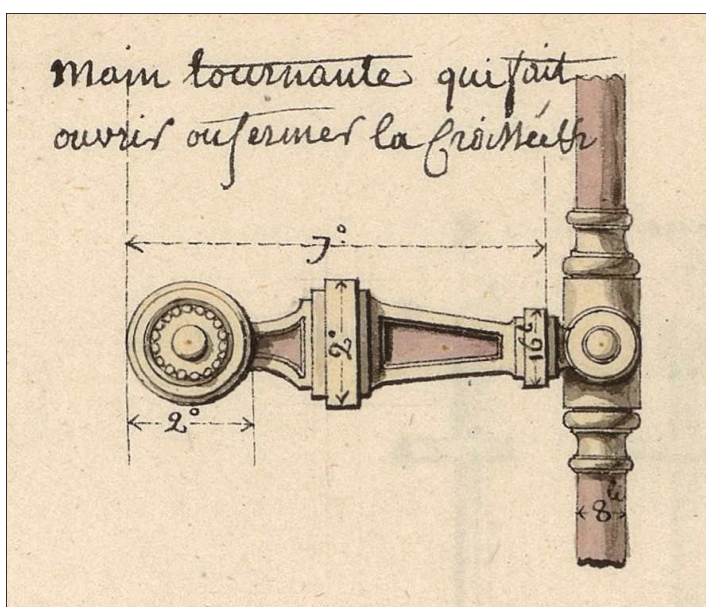 Main tournante qui fait
ouvrir ou fermer la Croisée
7°
2°
16ˡ
2°
8ˡ